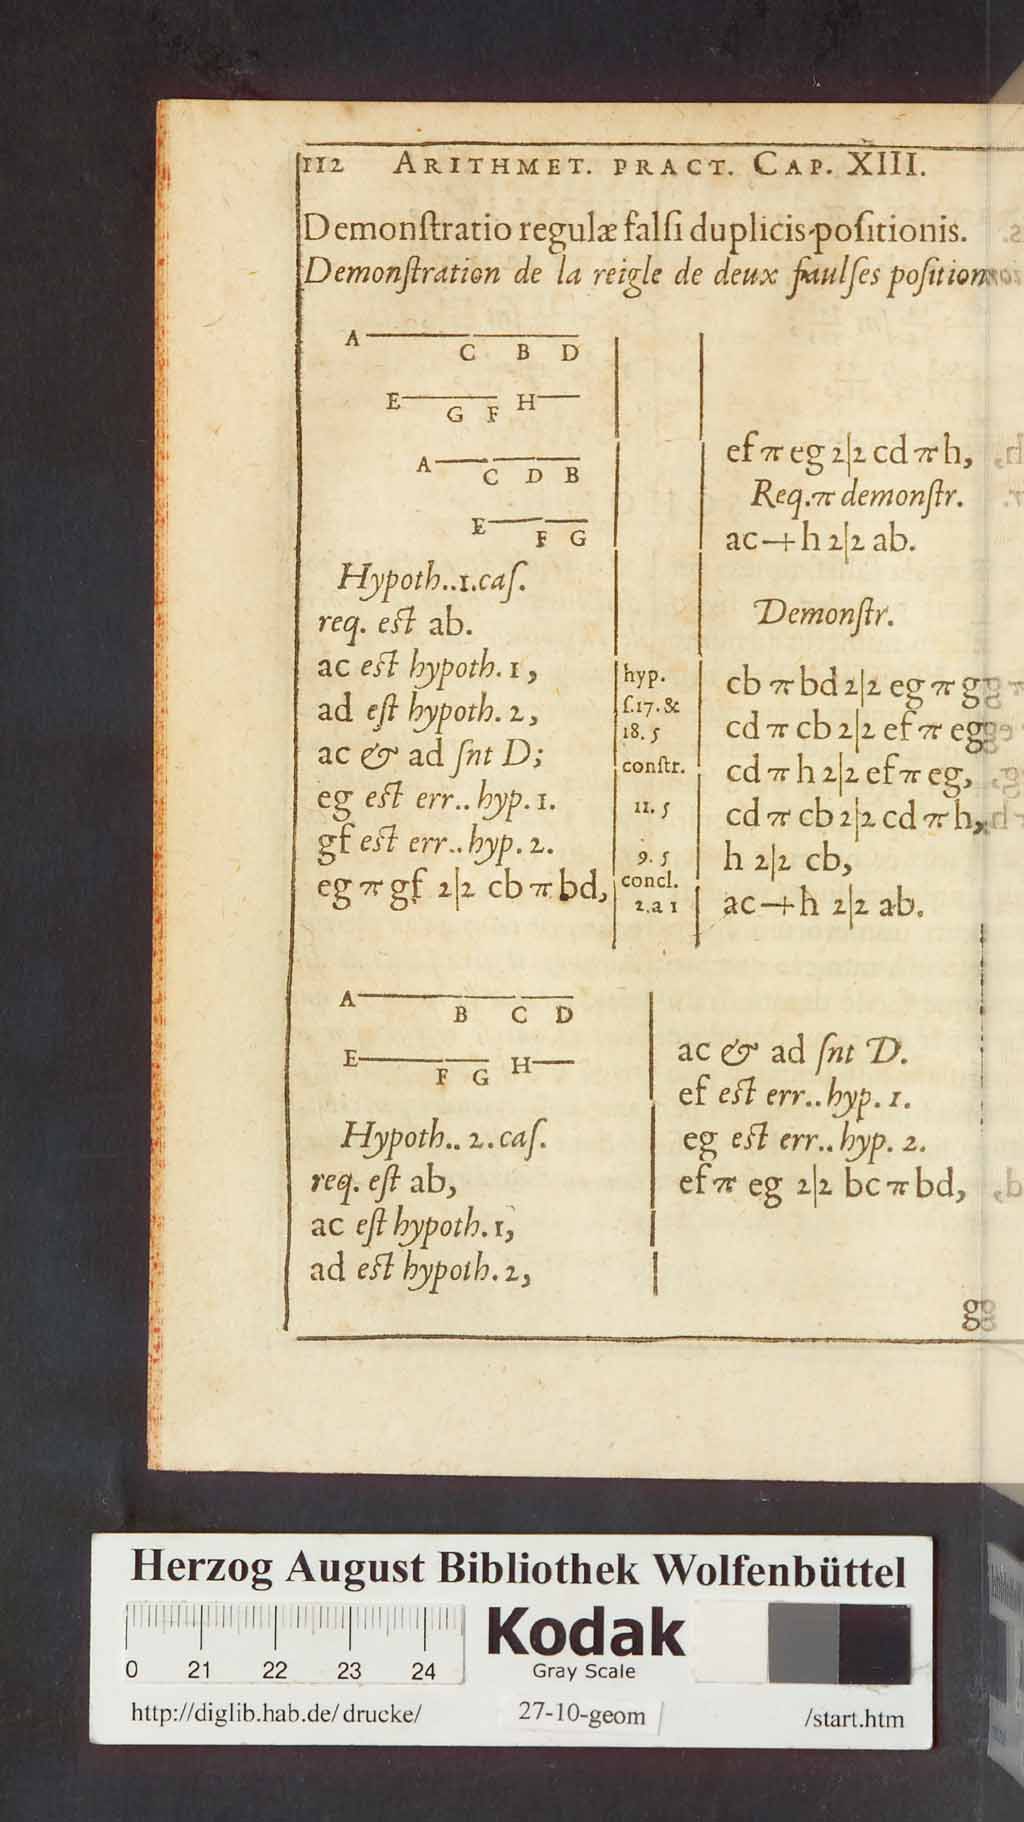 112 ARITHMET. PRACT. CAP. XIII.
Demonſtratio regulæ falſi duplicis poſitionis.
Demonſtration de la reigle de deux faulſes poſition
A C B D
E G F H
A C D B
E F G
Hypoth..1.caſ.
req. est ab.
ac est hypoth. 1,
ad eſt hypoth. 2,
ac & ad ſnt D;
eg est err.. hyp. 1.
gf est err.. hyp. 2.
eg π gf 2|2 cb π bd,
ef π eg 2|2 cd π h,
Req. π demonſtr.
ac + h 2|2 ab.
Demonſtr.
hyp. cb π bd 2|2 eg π g
ſ.17. &
18. 5 cd π cb 2|2 ef π eg
conſtr. cd π h 2|2 ef π eg,
11. 5 cd π cb 2|2 cd π h,
9. 5 h 2|2 cb,
concl.
2.a 1 ac + h 2|2 ab.
A B C D
E F G H
Hypoth.. 2. caſ.
req. eſt ab,
ac eſt hypoth. 1,
ad est hypoth. 2,
ac & ad ſnt D.
ef est err.. hyp. 1.
eg est err.. hyp. 2.
ef π eg 2|2 bc π bd,
Herzog August Bibliothek Wolfenbüttel
0 21 22 23 24
Kodak
Gray Scale
http://diglib.hab.de/drucke/ 27-10-geom /start.htm